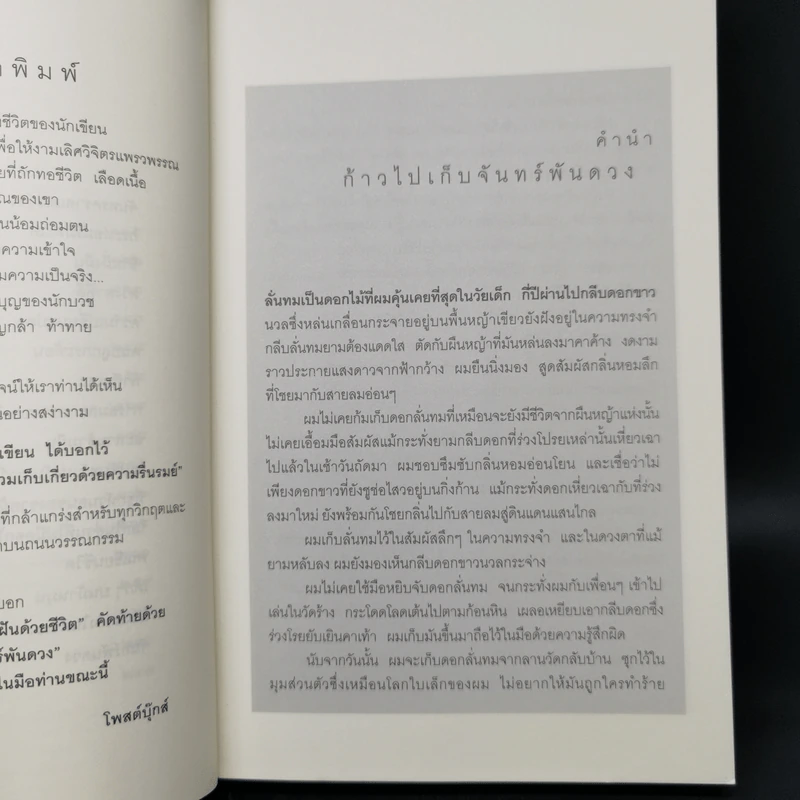 พิมพ์
ชีวิตของนักเขียน
พื่อให้งามเลิศวิจิตรแพรวพรรณ
ยที่ถักทอชีวิต เลือดเนื้อ
ณของเขา
นน้อมถ่อมตน
ความเข้าใจ
มความเป็นจริง...
บุญของนักบวช
ญกล้า ท้าทาย
จน์ให้เราท่านได้เห็น
นอย่างสง่างาม
เขียน ได้บอกไว้
วมเก็บเกี่ยวด้วยความรื่นรมย์"
ที่กล้าแกร่งสำหรับทุกวิกฤตและ
บนถนนวรรณกรรม
บอก
ฝันด้วยชีวิต" คัดท้ายด้วย
ร์พันดวง"
ในมือท่านขณะนี้
โพสต์บุ๊กส์
คำนำ
ก้าวไปเก็บจันทร์พันดวง
ลั่นทมเป็นดอกไม้ที่ผมคุ้นเคยที่สุดในวัยเด็ก กี่ปีผ่านไปกลีบดอกขาว
นวลซึ่งหล่นเกลื่อนกระจายอยู่บนพื้นหญ้าเขียวยังฝังอยู่ในความทรงจำ
กลีบลั่นทมยามต้องแดดใส ตัดกับผืนหญ้าที่มันหล่นลงมาคาค้าง งดงาม
ราวประกายแสงดาวจากฟ้ากว้าง ผมยืนนิ่งมอง สูดสัมผัสกลิ่นหอมลึก
ที่โชยมากับสายลมอ่อนๆ
ผมไม่เคยก้มเก็บดอกลั่นทมที่เหมือนจะยังมีชีวิตจากผืนหญ้าแห่งนั้น
ไม่เคยเอื้อมมือสัมผัสแม้กระทั่งยามกลีบดอกที่ร่วงโปรยเหล่านั้นเหี่ยวเฉา
ไปแล้วในเช้าวันถัดมา ผมชอบซึมซับกลิ่นหอมอ่อนโยน และเชื่อว่าไม่
เพียงดอกขาวที่ยังชูช่อไสวอยู่บนกิ่งก้าน แม้กระทั่งดอกเหี่ยวเฉากับที่ร่วง
ลงมาใหม่ ยังพร้อมกันโชยกลิ่นไปกับสายลมสู่ดินแดนแสนไกล
ผมเก็บลั่นทมไว้ในสัมผัสลึกๆ ในความทรงจำ และในดวงตาที่แม้
ยามหลับลง ผมยังมองเห็นกลีบดอกขาวนวลกระจ่าง
ผมไม่เคยใช้มือหยิบจับดอกลั่นทม จนกระทั่งผมกับเพื่อนๆ เข้าไป
เล่นในวัดร้าง กระโดดโลดเต้นไปตามก้อนหิน เผลอเหยียบเอากลีบดอกซึ่ง
ร่วงโรยยับเยินคาเท้า ผมเก็บมันขึ้นมาถือไว้ในมือด้วยความรู้สึกผิด
นับจากวันนั้น ผมจะเก็บดอกลั่นทมจากลานวัดกลับบ้าน ซุกไว้ใน
มุมส่วนตัวซึ่งเหมือนโลกใบเล็กของผม ไม่อยากให้มันถูกใครทำร้าย